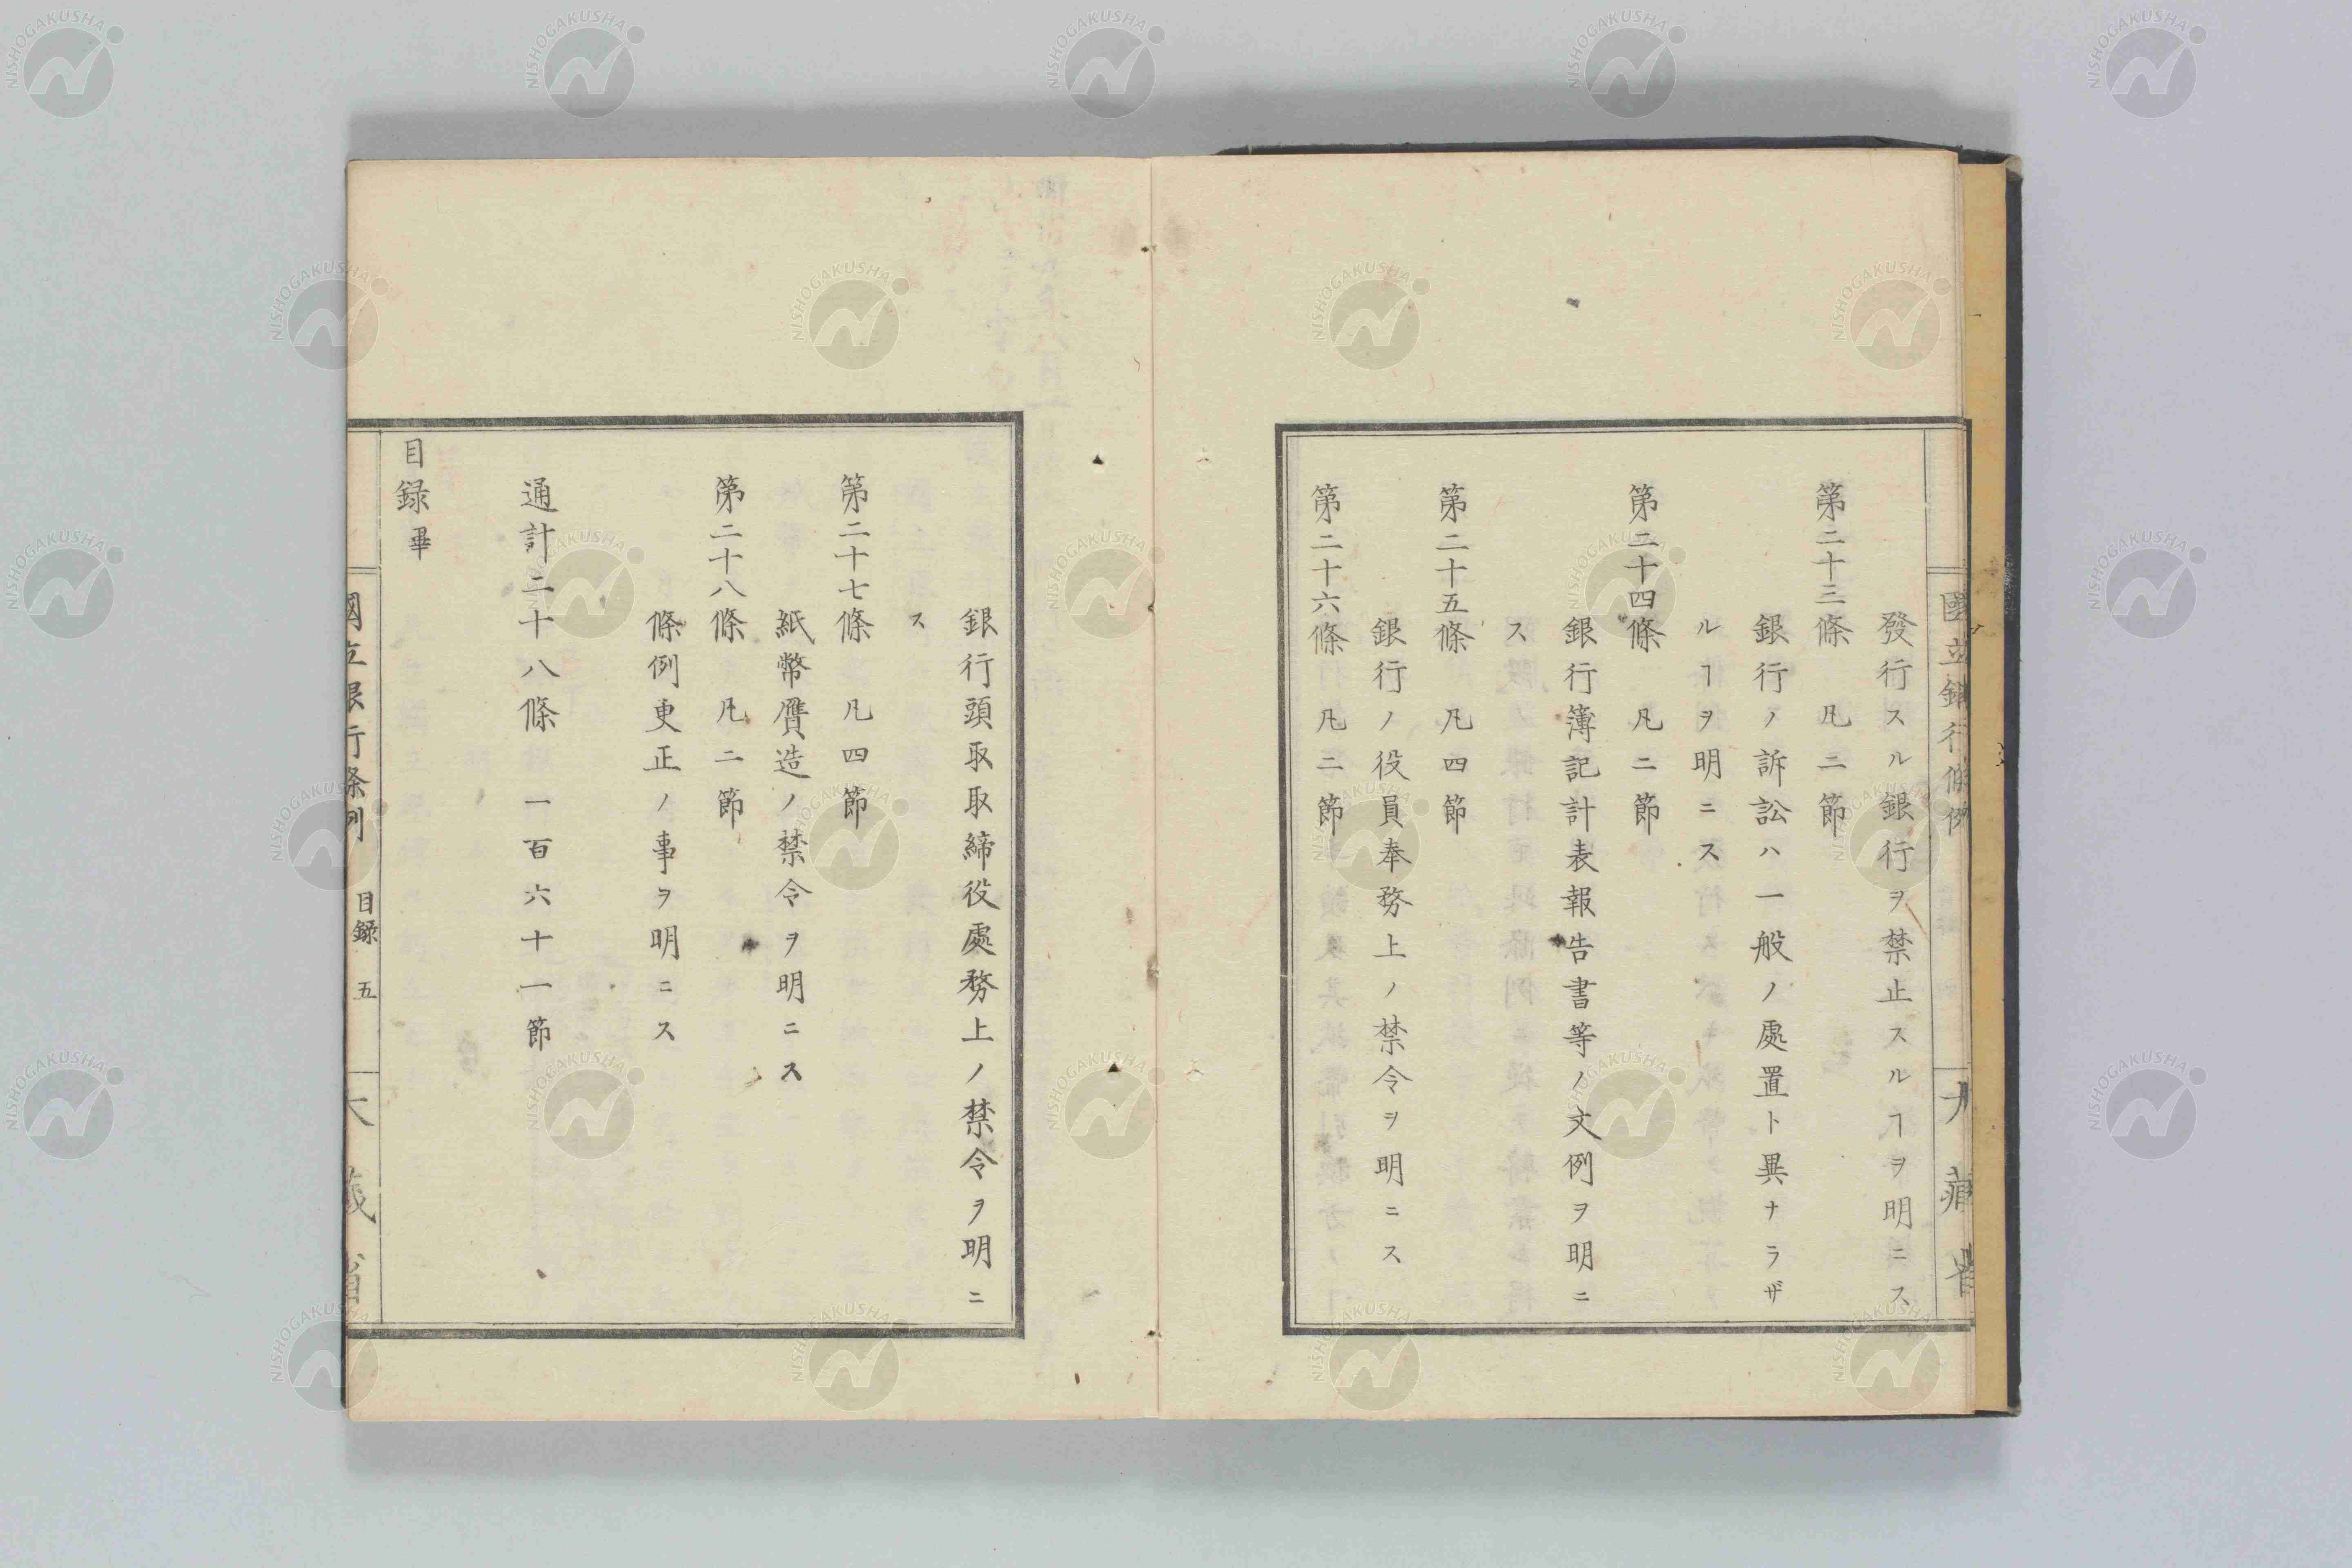 國立銀行條例
大藏省
發行スル銀行ヲ禁止スルヿヲ明ニス
第二十三條 凡二節
銀行ノ訴訟ハ一般ノ處置ト異ナラザ
ルヿヲ明ニス
第二十四條 凡二節
銀行簿記計表報告書等ノ文例ヲ明ニ
ス
第二十五條 凡四節
銀行ノ役員奉務上ノ禁令ヲ明ニス
第二十六條 凡二節
銀行頭取取締役處務上ノ禁令ヲ明ニ
ス
第二十七條 凡四節
紙幣贋造ノ禁令ヲ明ニス
第二十八條 凡二節
條例更正ノ事ヲ明ニス
通計二十八條 一百六十一節
目録畢
國立銀行條例 目録 五 大藏省
NISHOGAKUSHA